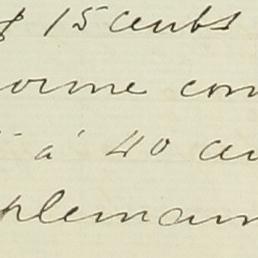 15 cents
orme con
à 40 ce
plemen